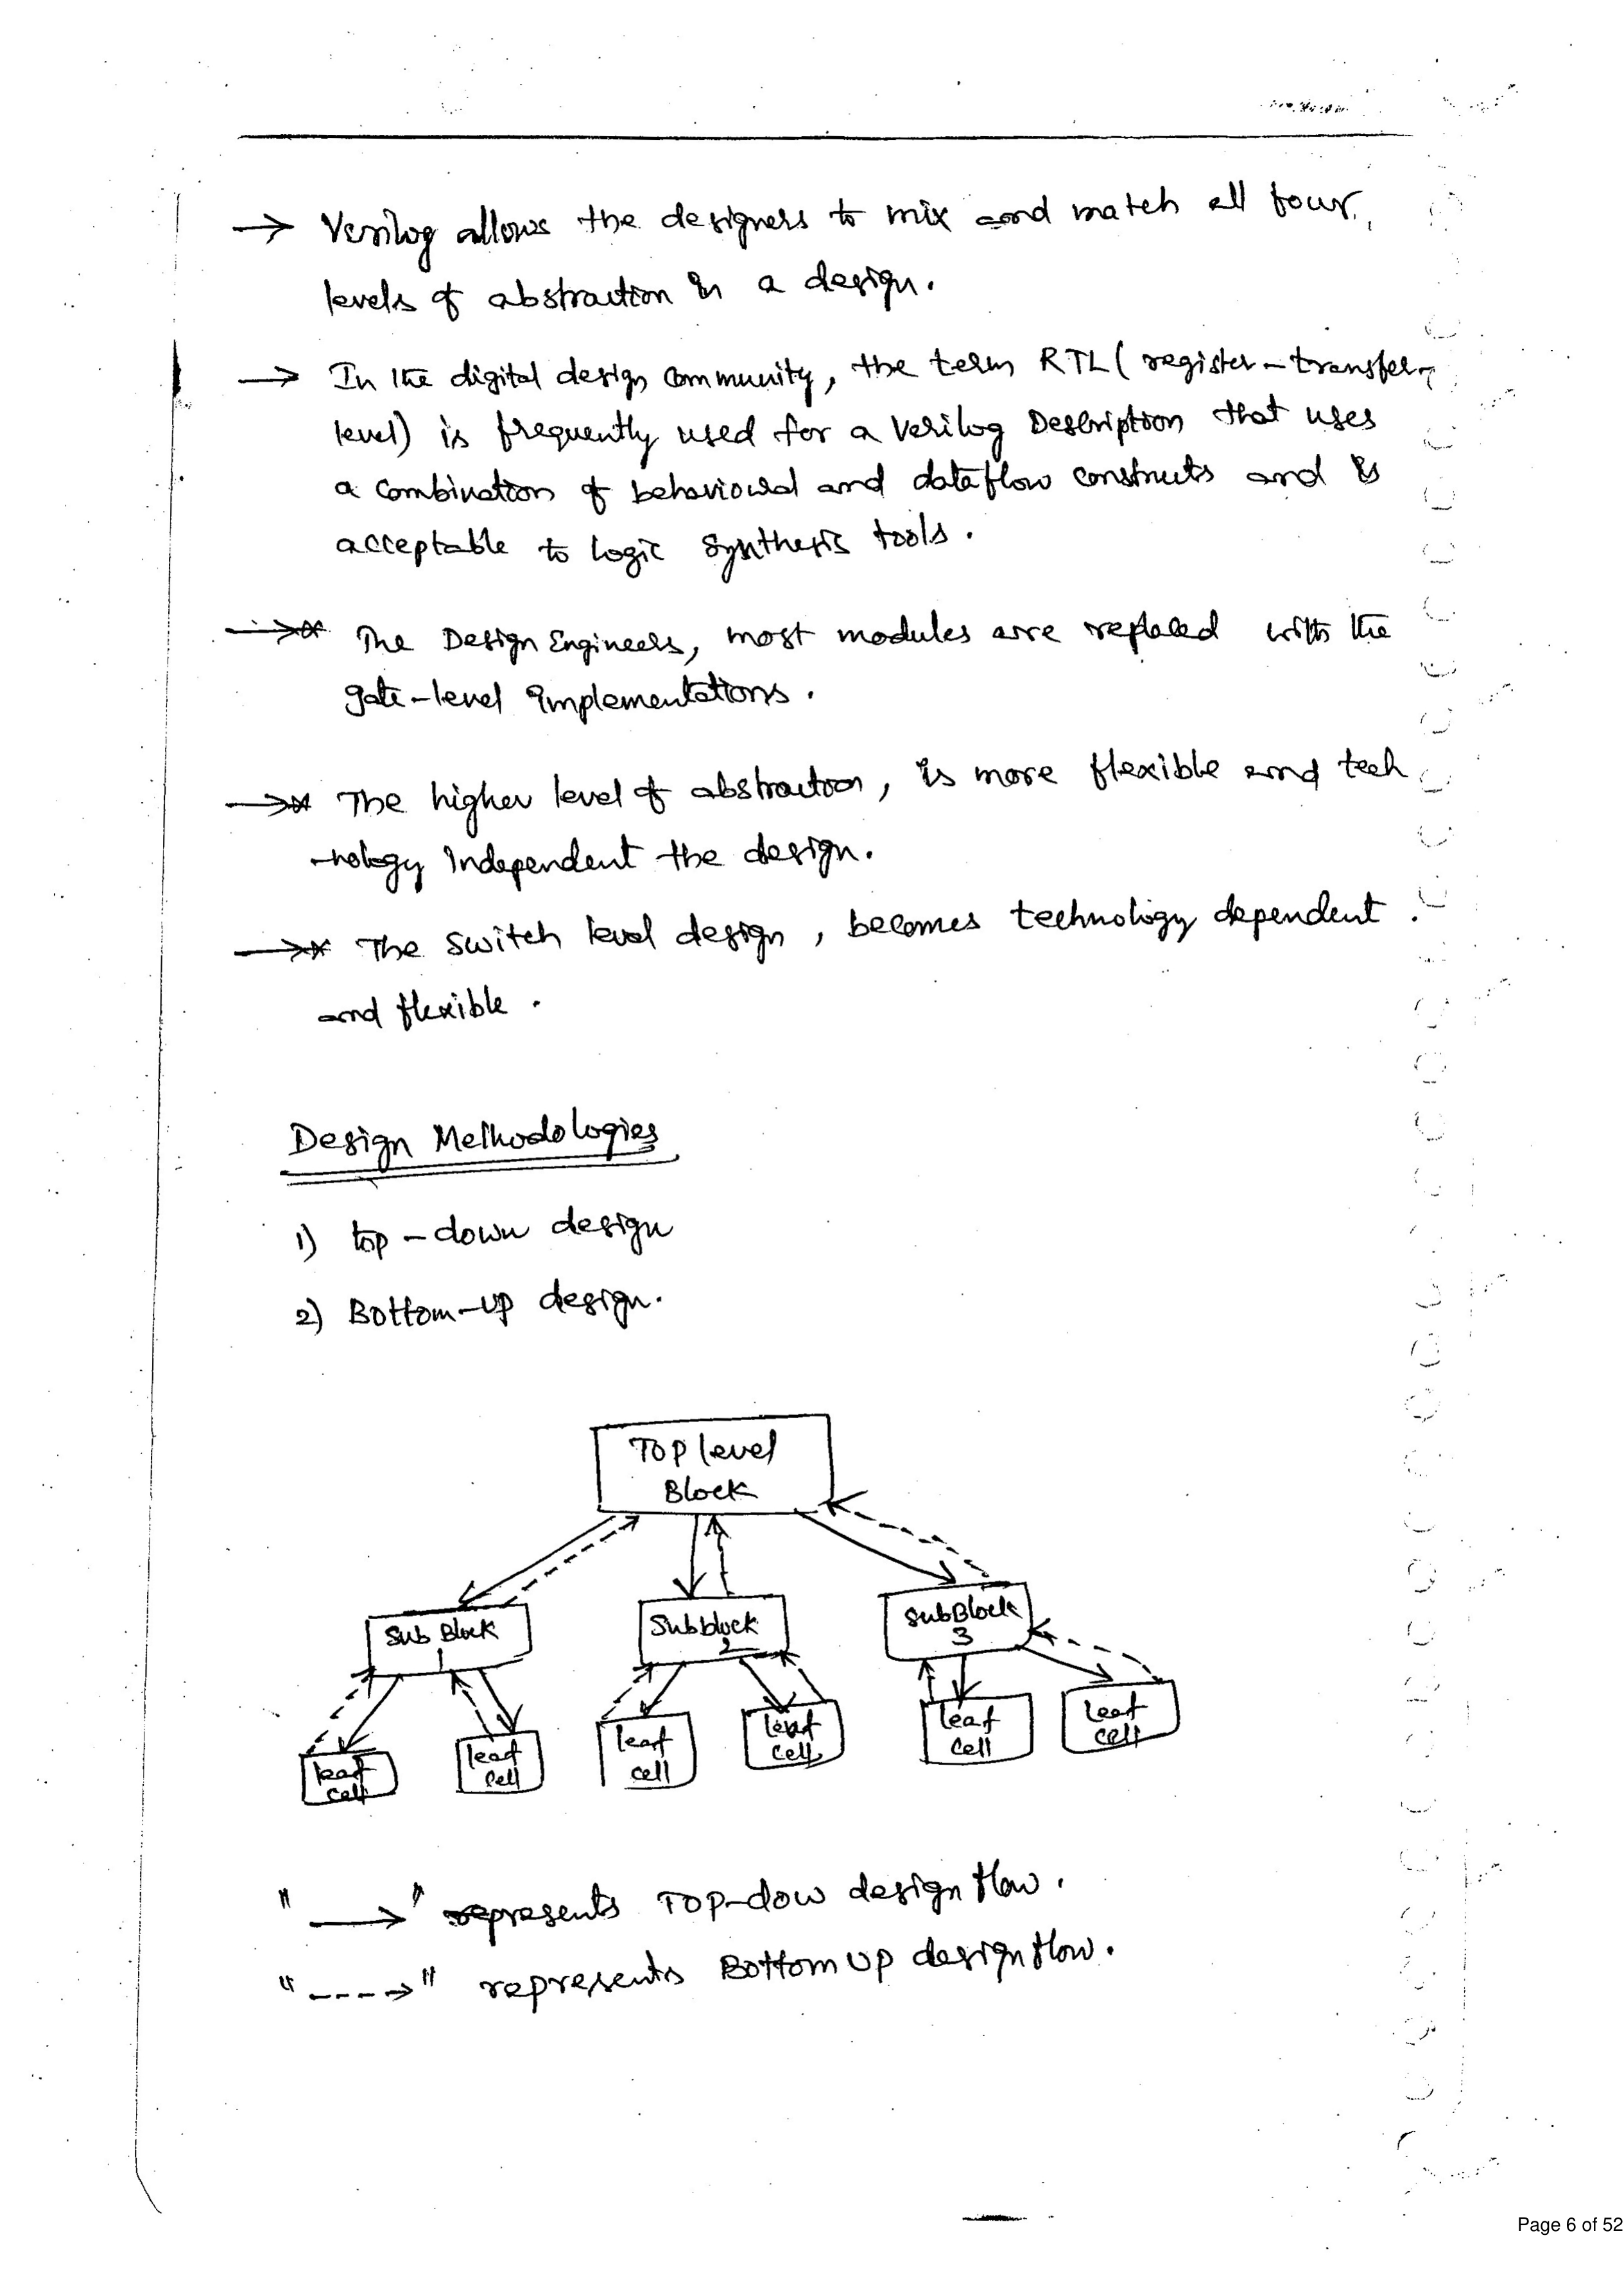 → Verilog allows the designers to mix and match all four
levels of abstraction in a design.
→ In the digital design community, the term RTL (register-transfer-
level) is frequently used for a Verilog Description that uses
a combination of behavioural and dataflow constructs and is
acceptable to logic synthesis tools.
→* The Design Engineers, most modules are replaced with the
gate-level implementations.
→* The higher level of abstraction, is more flexible and tech
-nology independent the design.
→* The switch level design, becomes technology dependent
and flexible.
Design Methodologies
1) top-down design
2) Bottom-up design.
TOP level
Block
Sub Block
1
Subblock
2
SubBlock
3
leaf
cell
leaf
cell
leaf
cell
leaf
cell
leaf
cell
leaf
cell
"→" represents TOP-dow design flow.
"---->" represents Bottom up design flow.
Page 6 of 52